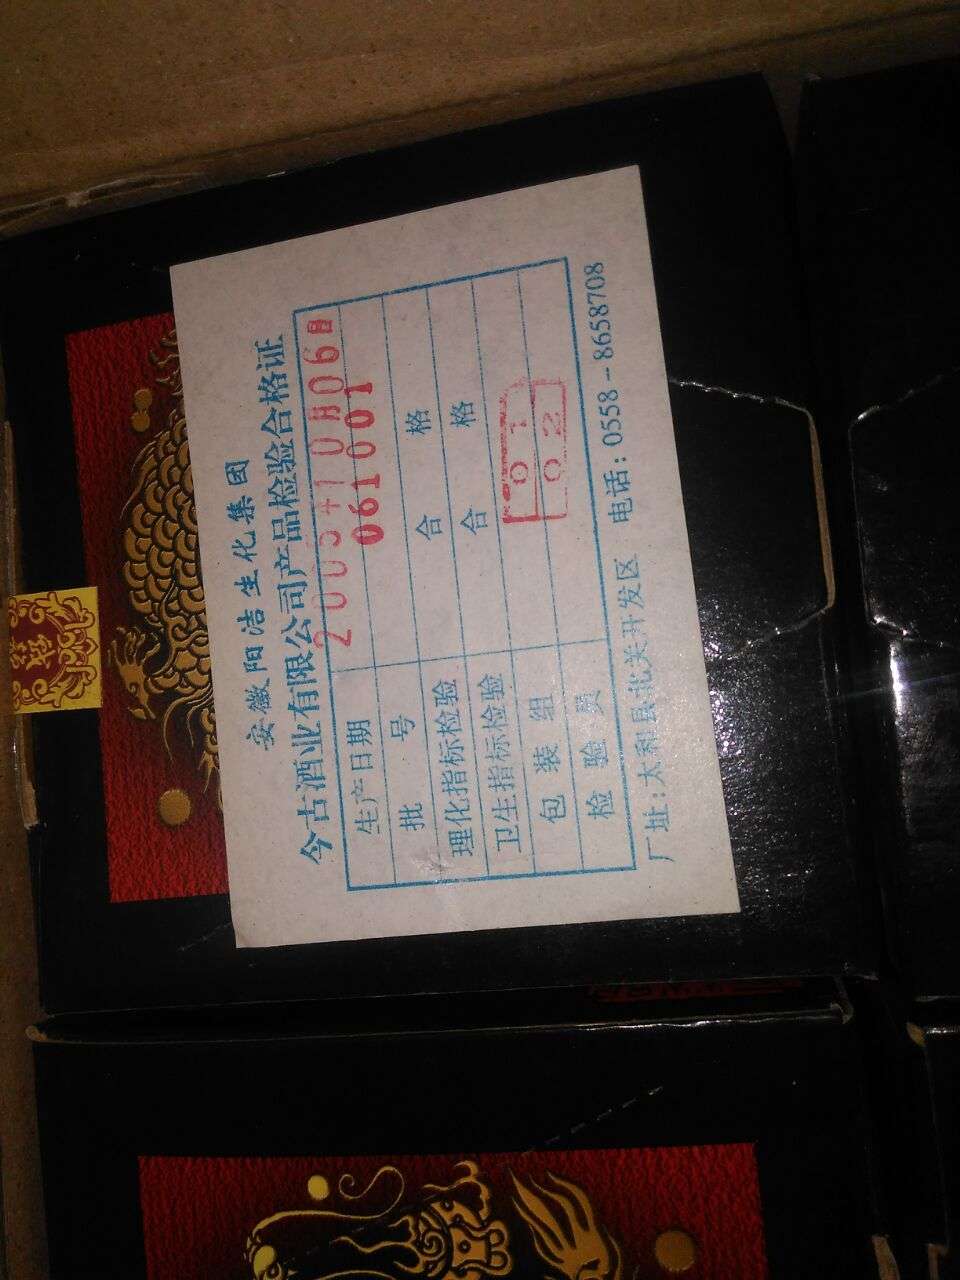 安徽阳洁生化集团
今古酒业有限公司产品检验合格证
生产日期 2005年10月06日
批号 061001
理化指标检验 合格
卫生指标检验 合格
包装组 01
检验员 02
厂址:太和县北关开发区 电话:0558-8658708